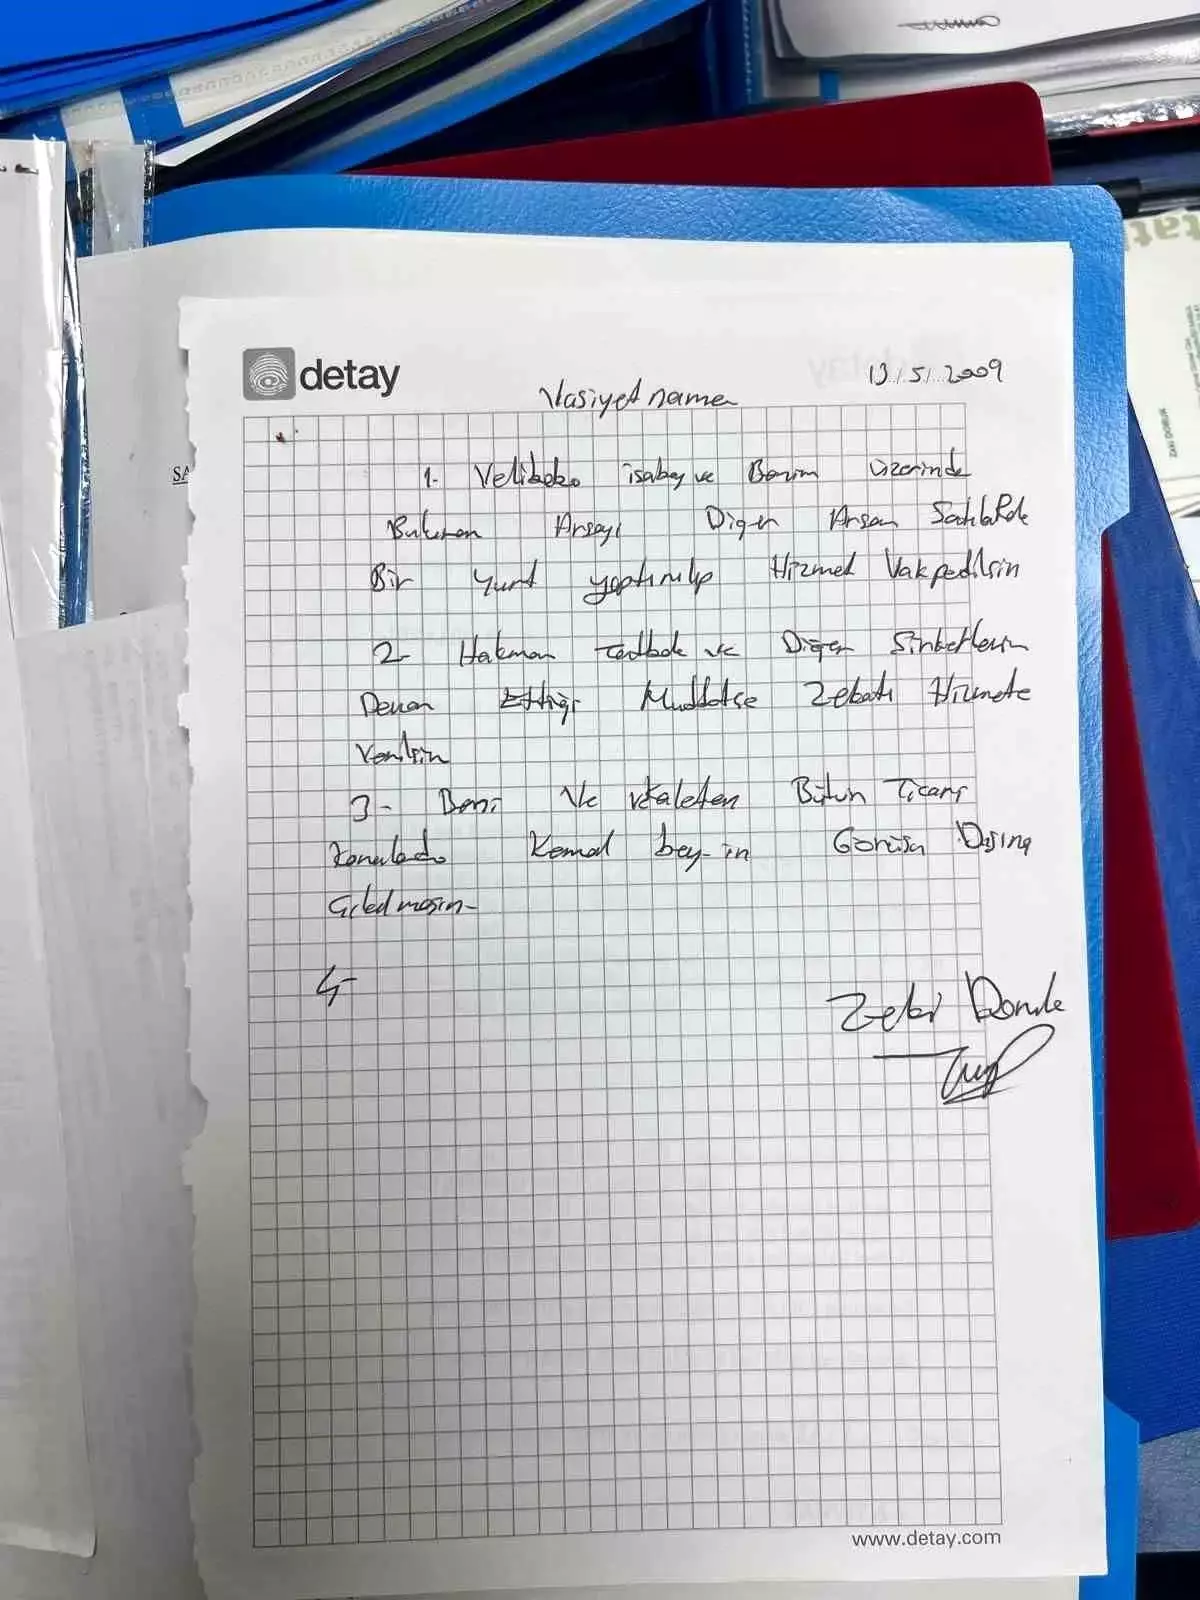 detay
13/5/2009
Vasiyet name
1- isabey ve Benim üzerinde
Bulunan Arsayı Diger Arsam
Bir Yurt yaptırılıp Hizmet Vakpedilsin
2- Hakman ve Diger Sirketlerin
Devam Ettigi Muddetce Zekatı Hizmete
Verilsin
3- Beni Ve vekaleten Bütun Ticari
Konularda Kemal bey-in Görüsü Dısına
4-
Zeki
www.detay.com
SA